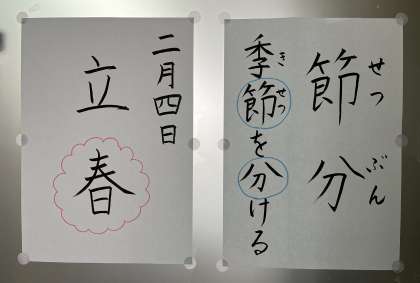 節分
せつぶん
季節を分ける
きせつ
二月四日
立春